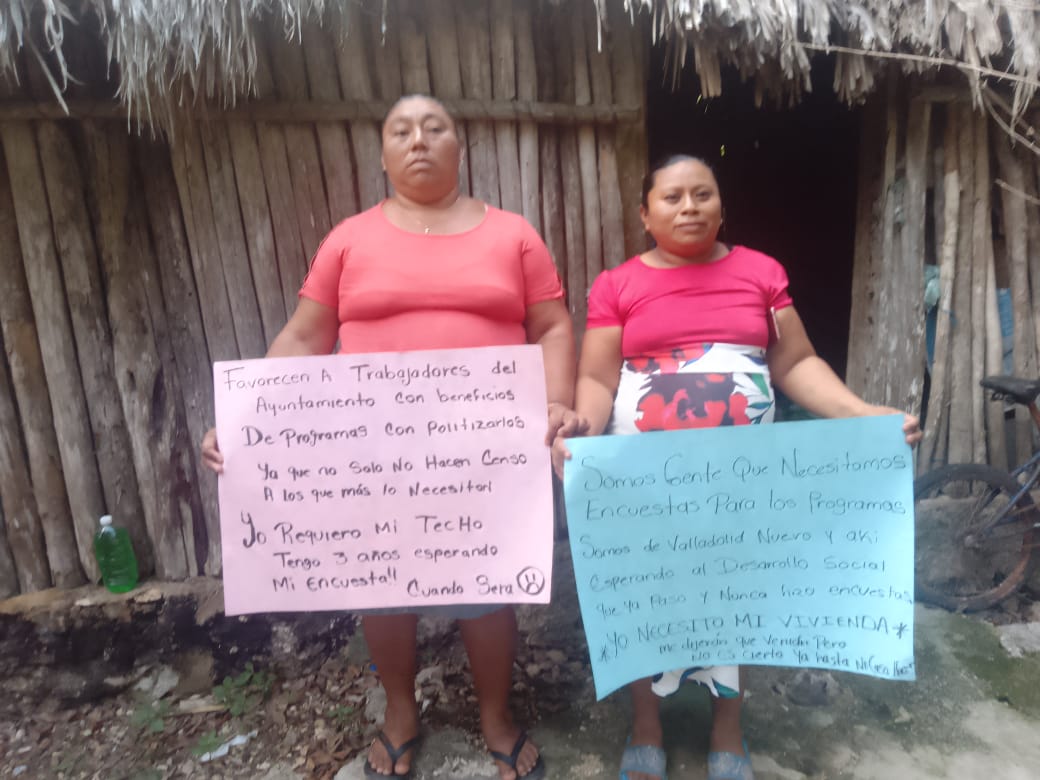 Favorecen A Trabajadores del
Ayuntamiento con beneficios
De Programas con Politizarlos
Ya que no Solo No Hacen Censo
A los que más lo Necesitan
Yo Requiero Mi Techo
Tengo 3 años esperando
Mi Encuesta!!
Cuando Sera
Somos Gente Que Necesitamos
Encuestas Para los Programas
Somos de Valladolid Nuevo y aki
Esperando al Desarrollo Social
que ya Paso y Nunca hizo encuestas
*YO NECESITO MI VIVIENDA*
me dijeron que venian Pero
No es cierto Ya hasta